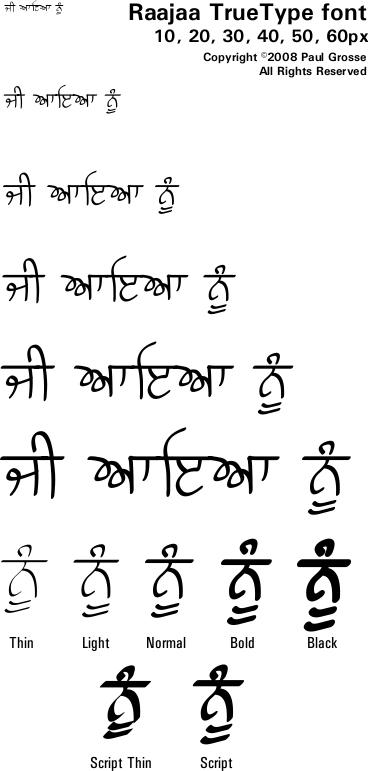 ਜੀ ਆਇਆ ਨੂੰ
Raajaa TrueType font
10, 20, 30, 40, 50, 60px
Copyright ©2008 Paul Grosse
All Rights Reserved
ਜੀ ਆਇਆ ਨੂੰ
ਜੀ ਆਇਆ ਨੂੰ
ਜੀ ਆਇਆ ਨੂੰ
ਜੀ ਆਇਆ ਨੂੰ
ਜੀ ਆਇਆ ਨੂੰ
ਨੂੰ ਨੂੰ ਨੂੰ ਨੂੰ ਨੂੰ
Thin Light Normal Bold Black
ਨੂੰ ਨੂੰ
Script Thin Script